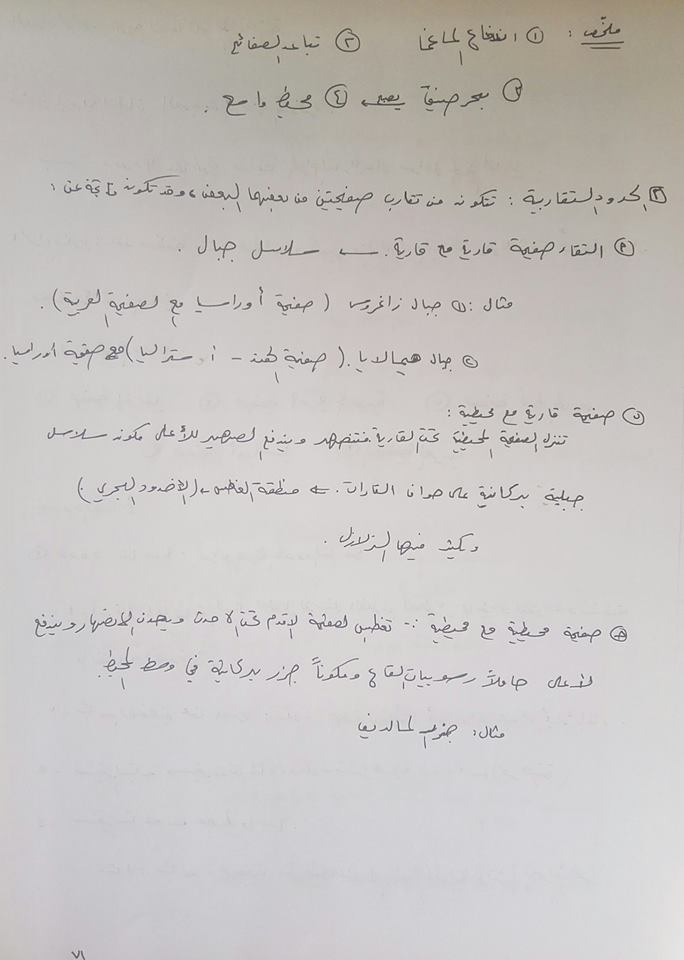 ملخص : ① اندفاع الماغما ② تباعد الصفائح
③ بحر ضيق يصبح ④ محيط واسع .
② الحدود التقاربية : تتكون من تقارب صفيحتين من بعضهما البعض ، وقد تكون ناتجة عن :
التقاء صفيحة قارية مع قارية . ← سلاسل جبال .
مثال : ① جبال زاغروس ( صفيحة أوراسيا مع الصفيحة العربية ) .
② جبال هيمالايا . ( صفيحة الهند - أستراليا ) مع صفيحة أوراسيا .
صفيحة قارية مع محيطية :
تنزل الصفيحة المحيطية تحت القارية فتنصهر ويندفع الصهير للأعلى مكونه سلاسل
جبلية بركانية على حواف القارات . ← منطقة الغطس ← ( الأخدود البحري )
ويكثر فيها الزلازل .
صفيحة محيطية مع محيطية :- تغطس الصفيحة الاقدم تحت الاحدث ويحدث الانصهار ويندفع
لأعلى حاملاً رسوبيات القاع ومكوناً جزر بركانية في وسط المحيط
مثال : المالديف
٧١